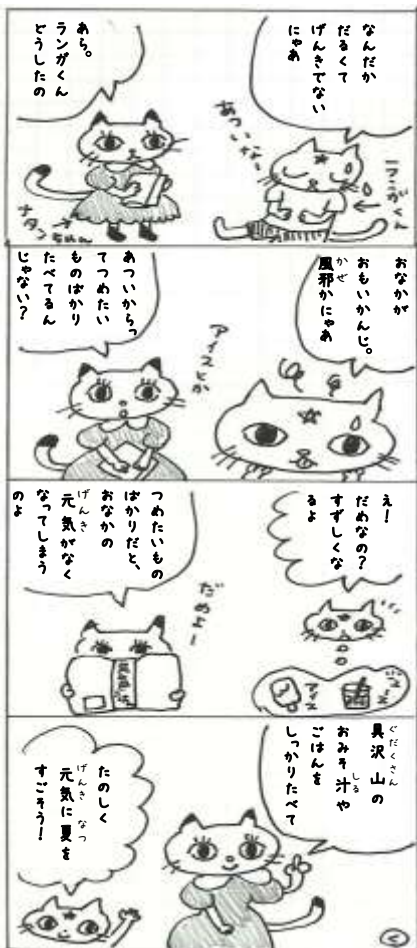 なんだか
だるくて
げんきでない
にゃあ
あついなー
ランガくん
あら。
ランガくん
どうしたの
ナタンちゃん
おなかが
おもいかんじ。
風邪かにゃあ
かぜ
あついからって
つめたい
ものばかり
たべてるん
じゃない?
アイスとか
え!
だめなの?
すずしくな
るよ
アイス
つめたいもの
ばかりだと、
おなかの
元気がなく
げんき
なってしまう
のよ
だめよー
具沢山の
ぐだくさん
おみそ汁や
しる
ごはんを
しっかりたべて
たのしく
元気に夏を
げんき なつ
すごそう!